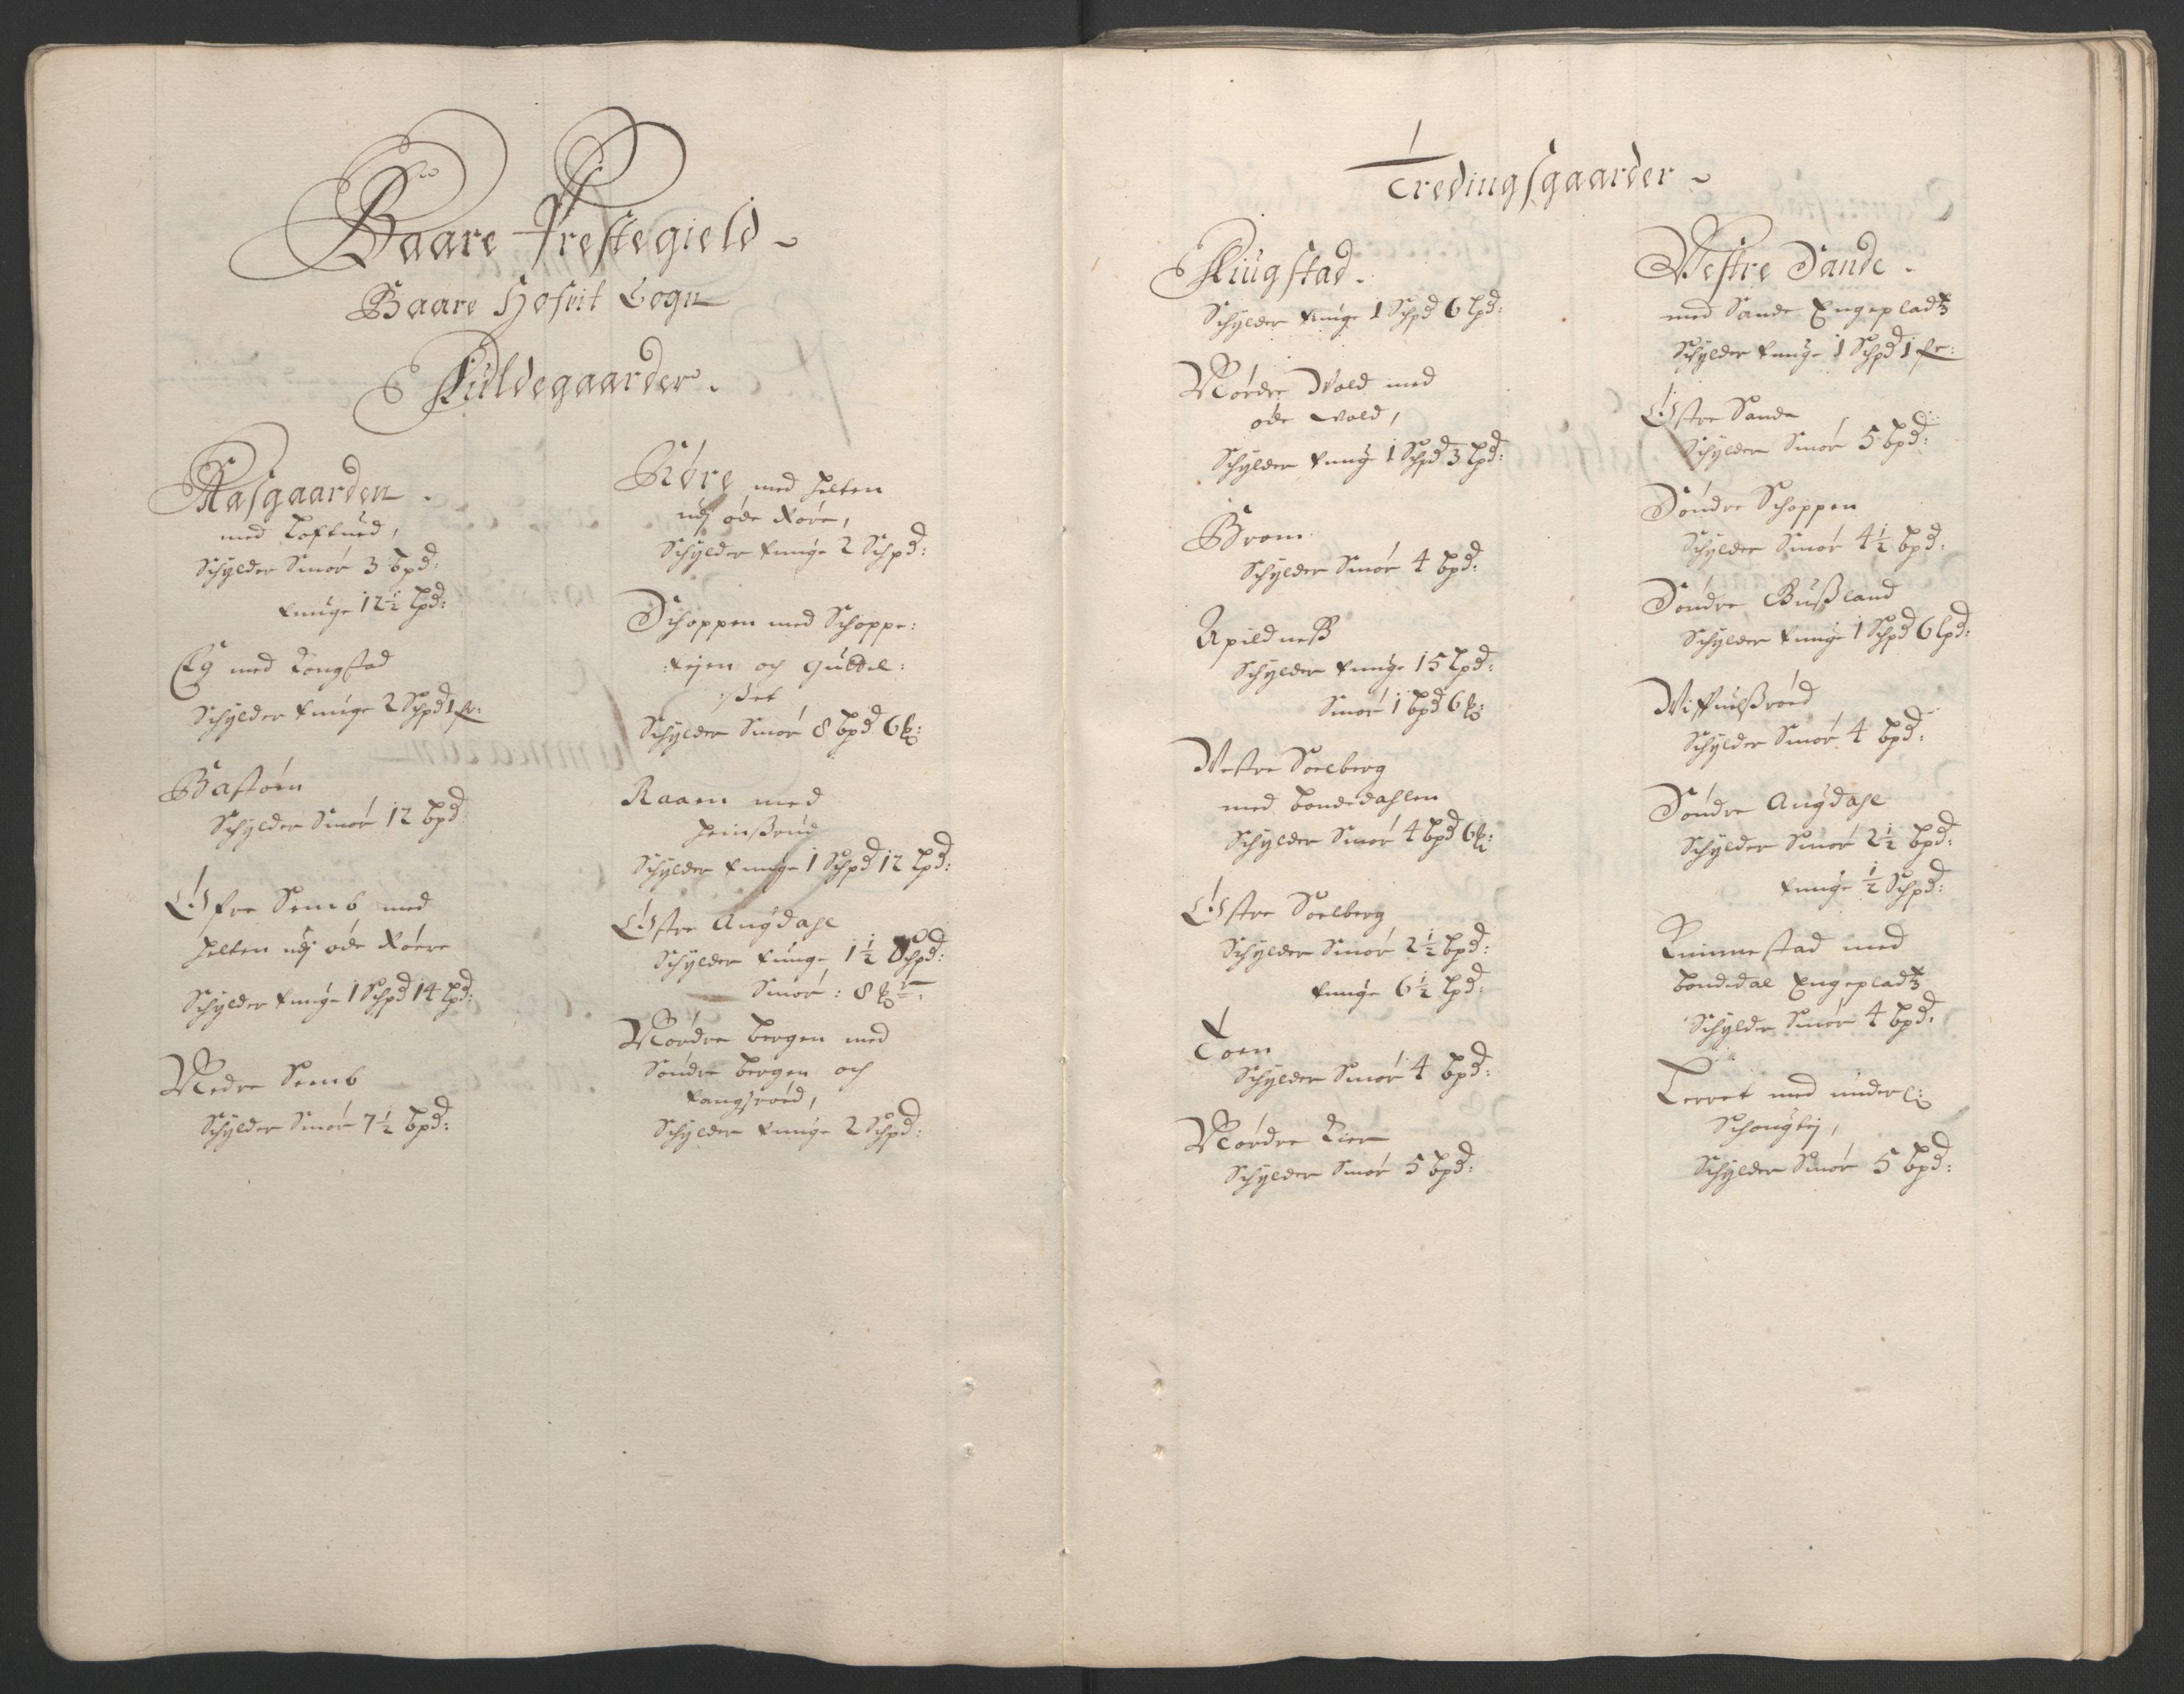 Baare Prestegield
Baare Hofvit Sogn
Fuldegaarder.
Aasgaarden.
med Toftued,
Schylder Smør 3 bpd:
tunge 12½ lpd:
Eg med Kongstad
Schylder tunge 2 Schpd 1 fr:
Bastøen
Schylder Smør 12 bpd:
Øfre Semb med
helten udj øde Røere
Schylder tunge 1 Schpd 14 lpd:
Nedre Semb
Schylder Smør 7½ bpd:
Røre med helten
udj øde Røre,
Schylder tunge 2 Schpd:
Schoppen med Schoppe:
:tejen och Guttel:
:set
Schylder Smør 8 bpd 6
Raaen med
heinssrud
Schylder tunge 1 Schpd 12 lpd:
Østre Augdahl
Schylder tunge 1½ Schpd:
Smør: 8
Nordre bergen med
Søndre bergen och
Langsrød,
Schylder tunge 2 Schpd:
Tredingsgaarder
Kiugstad.
Schylder tunge 1 Schpd 6 lpd:
Nordre Wold med
øde wold,
Schylder tunge 1 Schpd 3 lpd:
Brom
Schylder Smør 4 bpd:
Apildness
Schylder tunge 15 lpd:
Smør 1 bpd 6
Vestre Soelberg
med bondedahlen
Schylder Smør 4 bpd 6
Østre Soelberg
Schylder Smør 2½ bpd:
tunge 6½ lpd:
Toen
Schylder Smør 4 bpd:
Nordre Kier
Schylder Smør 5 bpd:
Vestre Sande.
med Sande Engepladtz
Schylder tunge 1 Schpd 1 fr:
Østre Sande
Schylder Smør 5 bpd:
Søndre Schoppen
Schylder Smør 4½ bpd:
Søndre Bussland
Schylder tunge 1 Schpd 6 lpd:
Viffuelssrød
Schylder Smør 4 bpd:
Søndre Augdahl
Schylder Smør 2½ bpd:
tunge ½ Schpd:
Rimmestad med
bondedal Engepladtz
Schylder Smør 4 bpd:
Verret med underl:
Schougtej,
Schylder Smør 5 bpd: